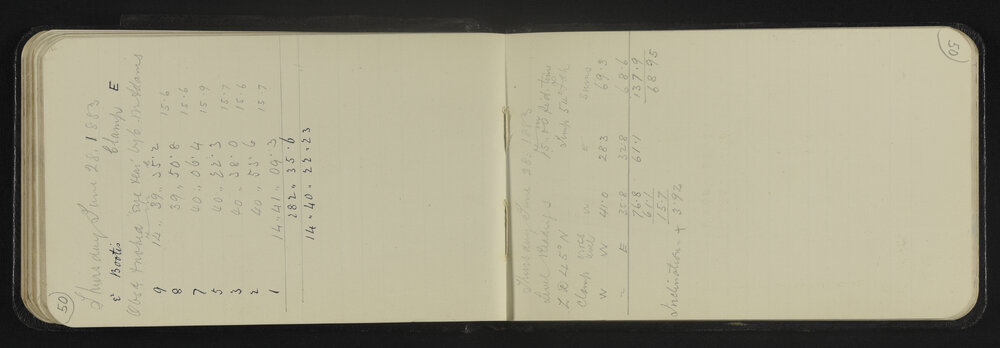 50
Thursday June 28, 1883
ε Bootis Clamp E
Obsd Transit Eye &
9 14 " 39 " 35.2 15.6
8 39 " 50.8 15.6
7 40 " 06.4 15.9
5 40 " 22.3 15.7
3 40 " 38.0 15.6
2 40 " 53.6 15.7
1 14 " 41 " 09.3
282 " 35.6
14 " 40 " 22.23
50
Thursday June 28, 1883
Level Readings
Z D 45° N
Clamp W E Sums
W W 41.0 28.3 69.3
" E 35.8 32.8 68.6
76.8 61.1 137.9
61.1 68.95
15.7
Inclination = + 3.92